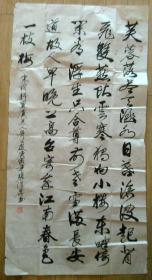 芙蓉落尽天涵水日暮沧波起背
飞双燕贴云寒独向小楼东畔倚
阑看浮生只合尊前老雪满长安
道故人早晚上高台寄我江南春色
一枝梅